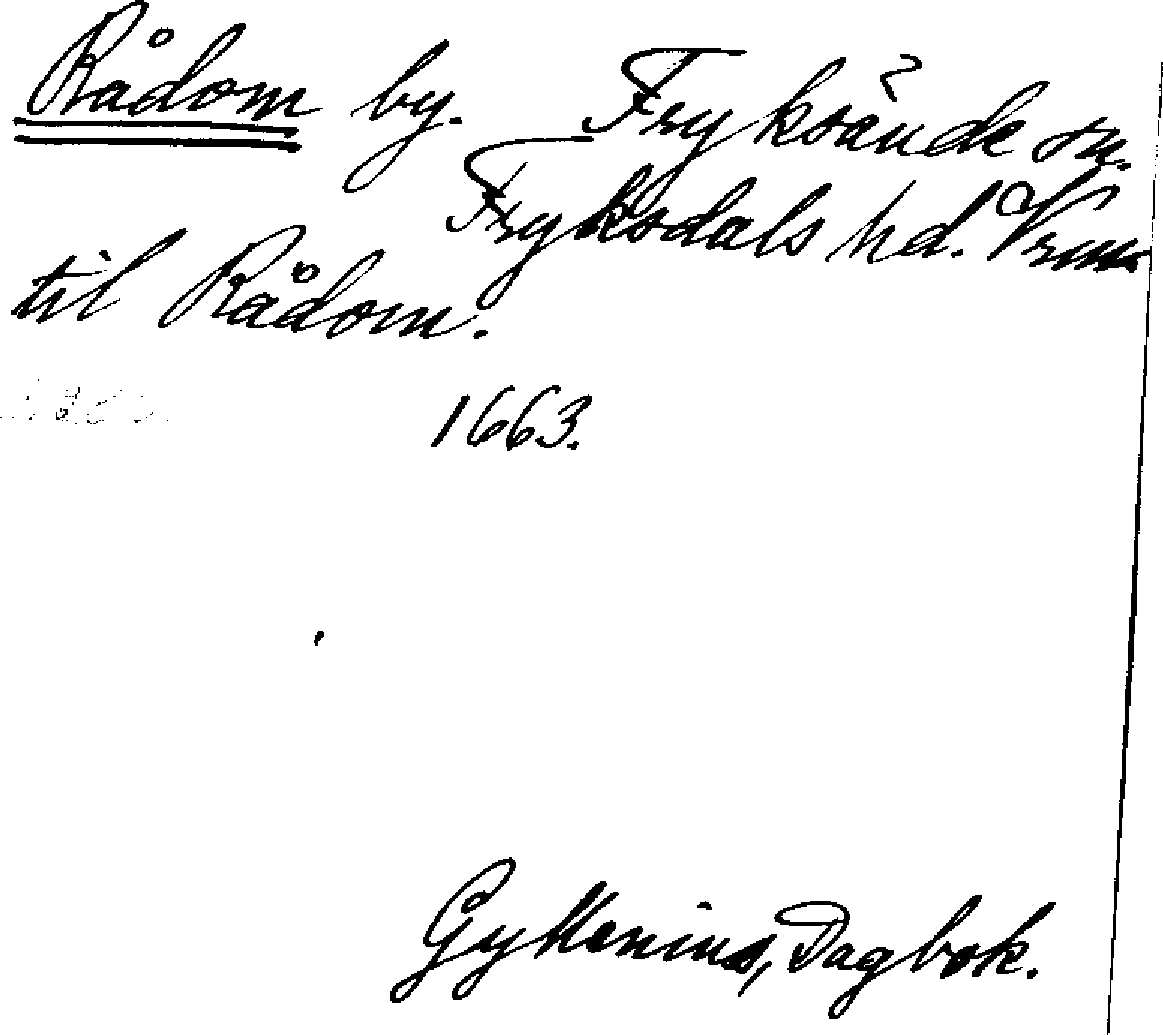 Rådom by. Fryksände sn.
Fryksdals hd. Vrm
til Rådom.
1663.
Gyllenius, Dagbok.